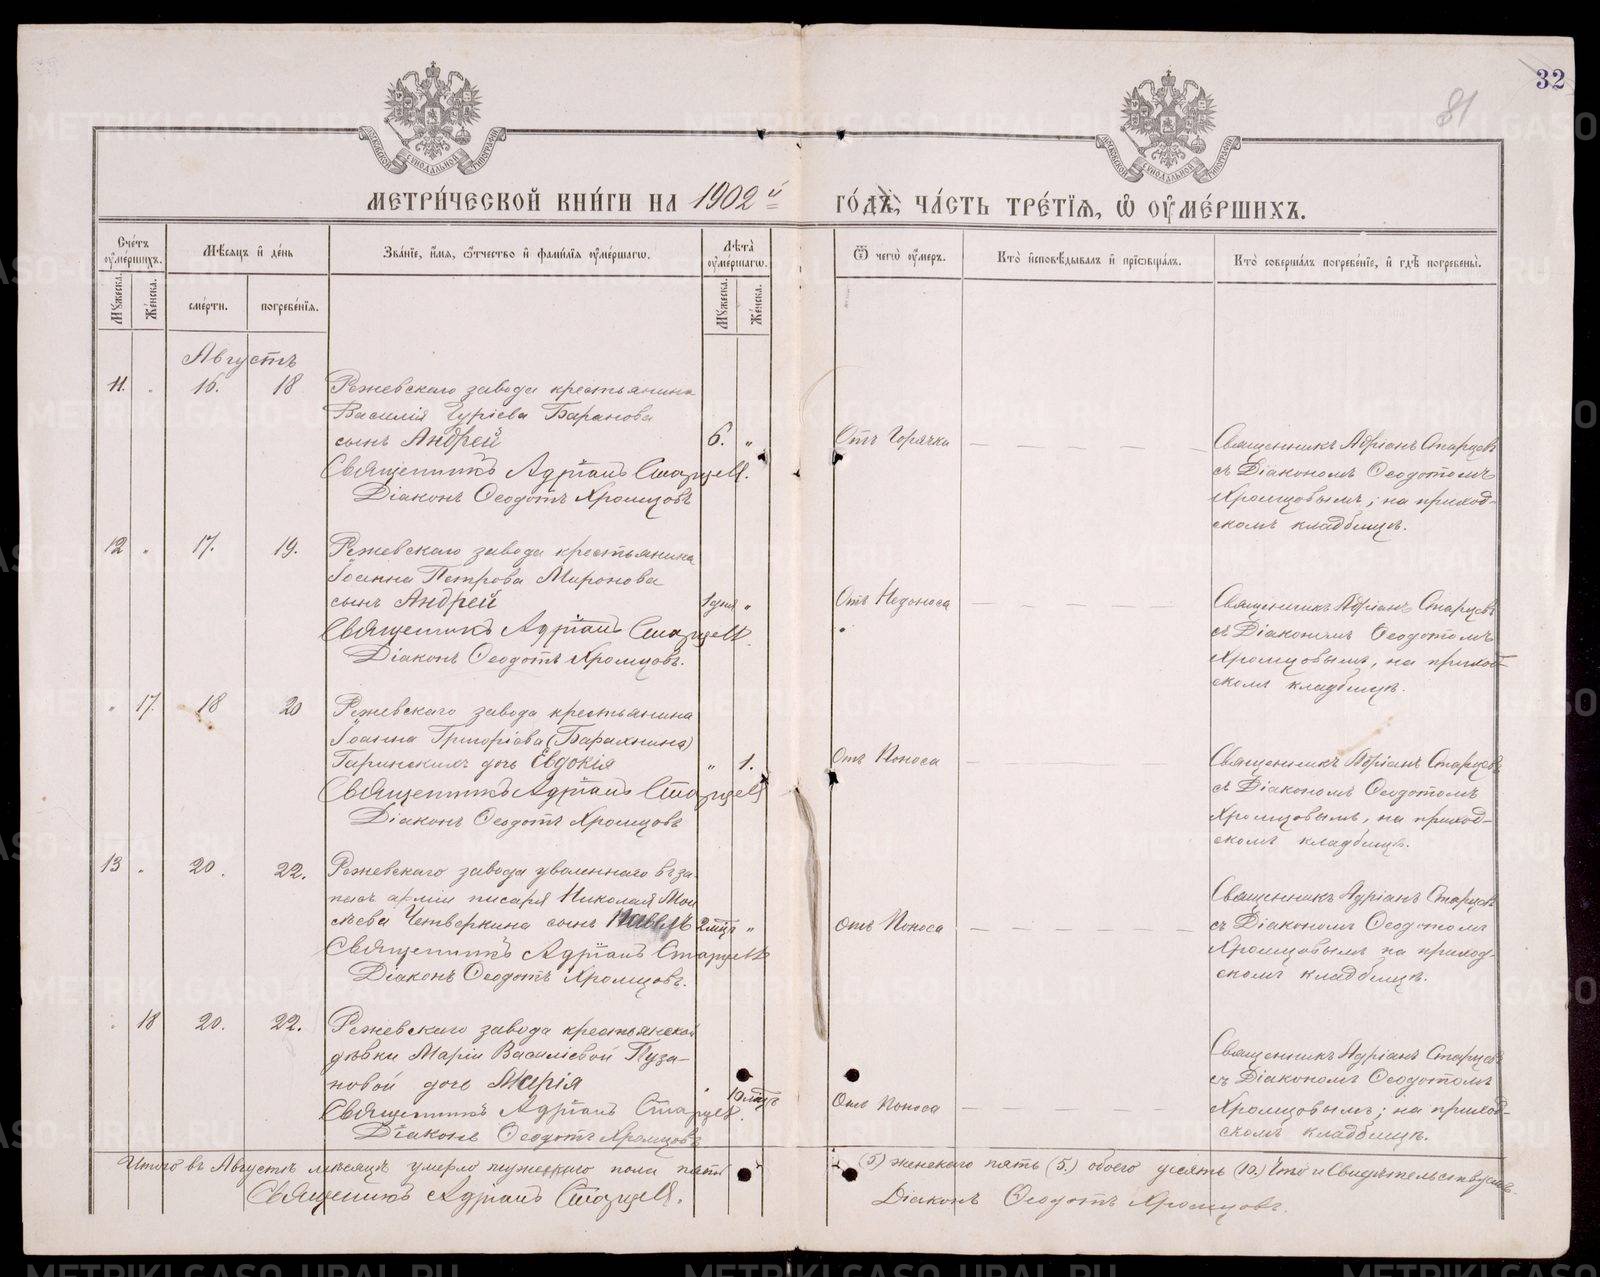 32
81
МОСКОВСКОЙ СѴНОДАЛЬНОЙ ТИПОГРАФІИ
МОСКОВСКОЙ СѴНОДАЛЬНОЙ ТИПОГРАФІИ
МЕТРИ́ЧЕСКОЙ КНИ́ГИ НА 1902й ГО́ДЪ, ЧА́СТЬ ТРЕ́ТІЯ, Ѽ ОУМЕ́РШИХЪ.
Сче́тъ оуме́ршихъ.
Мѣ́сяцъ и де́нь
Зва́ніе, и́мя, ѻ́тчество и фами́лія оуме́ршагѡ.
Лѣ́та оуме́ршагѡ.
Ѿ чегѡ̀ оу́меръ.
Кто̀ исповѣ́дывалъ и пріѡбща́лъ.
Кто̀ соверша́лъ погребе́ніе, и гдѣ̀ погребены̀.
Му́жеска.
Же́нска.
сме́рти.
погребе́нія.
Му́жеска.
Же́нска.
Августъ
11. „ 16. 18 Режевскаго завода крестьянина
Василія Гуріева Баранова
сынъ Андрей 6. „ Отъ Горячки
Священникъ Адріанъ Старцевъ.
Діаконъ Ѳеодотъ Хромцовъ
Священникъ Адріанъ Старцевъ
съ Діакономъ Ѳеодотомъ
Хромцовымъ; на приход-
скомъ кладбищѣ.
12 „ 17. 19. Режевскаго завода крестьянина
Іоанна Петрова Миронова
сынъ Андрей 1 дня „ Отъ Недоноса
Священникъ Адріанъ Старцевъ.
Діаконъ Ѳеодотъ Хромцовъ.
Священникъ Адріанъ Старцевъ
съ Діакономъ Ѳеодотомъ
Хромцовымъ, на приход-
скомъ кладбищѣ.
„ 17. 18 20 Режевскаго завода крестьянина
Іоанна Григоріева (Барахнина)
Гаринскихъ дочь Евдокія „ 1. Отъ Поноса
Священникъ Адріанъ Старцевъ
Діаконъ Ѳеодотъ Хромцовъ
Священникъ Адріанъ Старцевъ
съ Діакономъ Ѳеодотомъ
Хромцовымъ, на приход-
скомъ кладбищѣ.
13 „ 20. 22. Режевскаго завода уволеннаго въ за-
пасъ арміи писаря Николая Мои
сѣева Четверкина сынъ Павелъ 2 мѣц „ Отъ Поноса
Священникъ Адріанъ Старцевъ
Діаконъ Ѳеодотъ Хромцовъ.
Священникъ Адріанъ Старцевъ
съ Діакономъ Ѳеодотомъ
Хромцовымъ на приход-
скомъ кладбищѣ.
„ 18 20. 22. Режевскаго завода крестьянской
дѣвки Маріи Василіевой Пуза-
новой дочь Марія „ 10 мѣц Отъ Поноса
Священникъ Адріанъ Старцевъ.
Діаконъ Ѳеодотъ Хромцовъ
Священникъ Адріанъ Старцевъ
съ Діакономъ Ѳеодотомъ
Хромцовымъ; на приход-
скомъ кладбищѣ.
Итого въ Августѣ мѣсяцѣ умерло мужескаго пола пять (5) женскаго пять (5.) обоего десять (10.) Что и Свидѣтельствуемъ.
Священникъ Адріанъ Старцевъ. Діаконъ Ѳеодотъ Хромцовъ.
METRIKI.GASO-URAL.RU